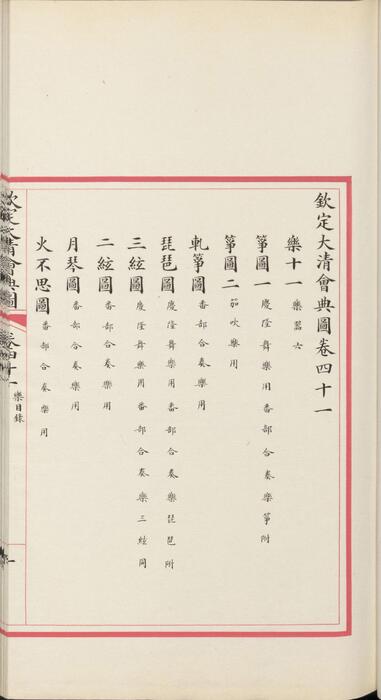 欽定大清會典圖卷四十一
樂十一樂器六
箏圖一慶隆舞樂用番部合奏樂箏附
箏圖二笳吹樂用
軋箏圖番部合奏樂用
琵琶圖慶隆舞樂用番部合奏樂琵琶附
三絃圖慶隆舞樂用番部合奏樂三絃同
二絃圖番部合奏樂用
月琴圖番部合奏樂用
火不思圖番部合奏樂用
欽定大清會典圖
卷四十一
樂目錄
一